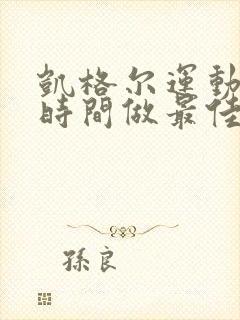 凱格尔運動
時間做最佳
孫良